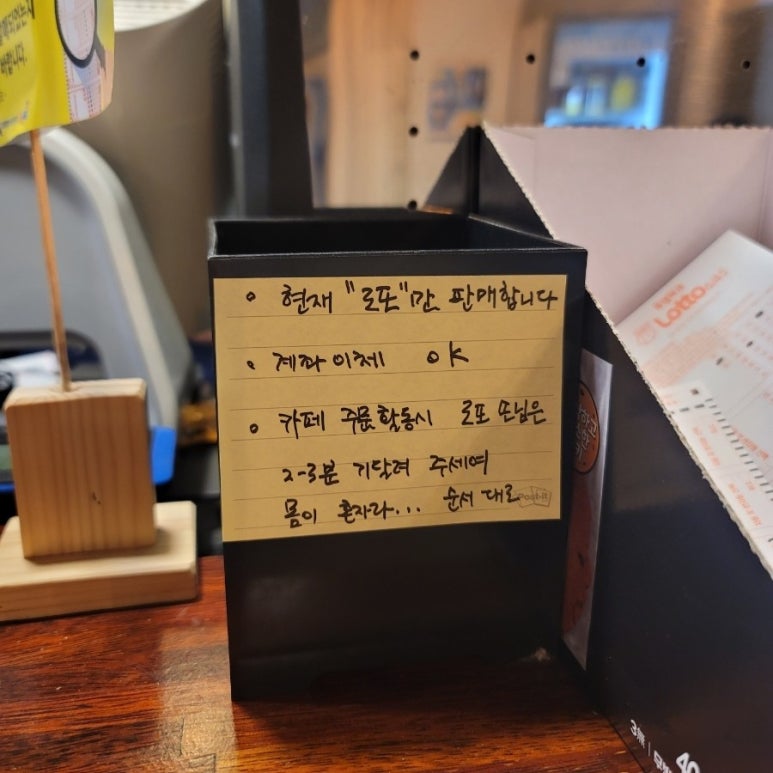 현재 "로또"만 판매합니다
계좌이체 OK
카페 주문 활동시 로또 손님은
2-3분 기달려 주세여
몸이 혼자라... 순서 대로
Post-it
Lotto
바랍니다.